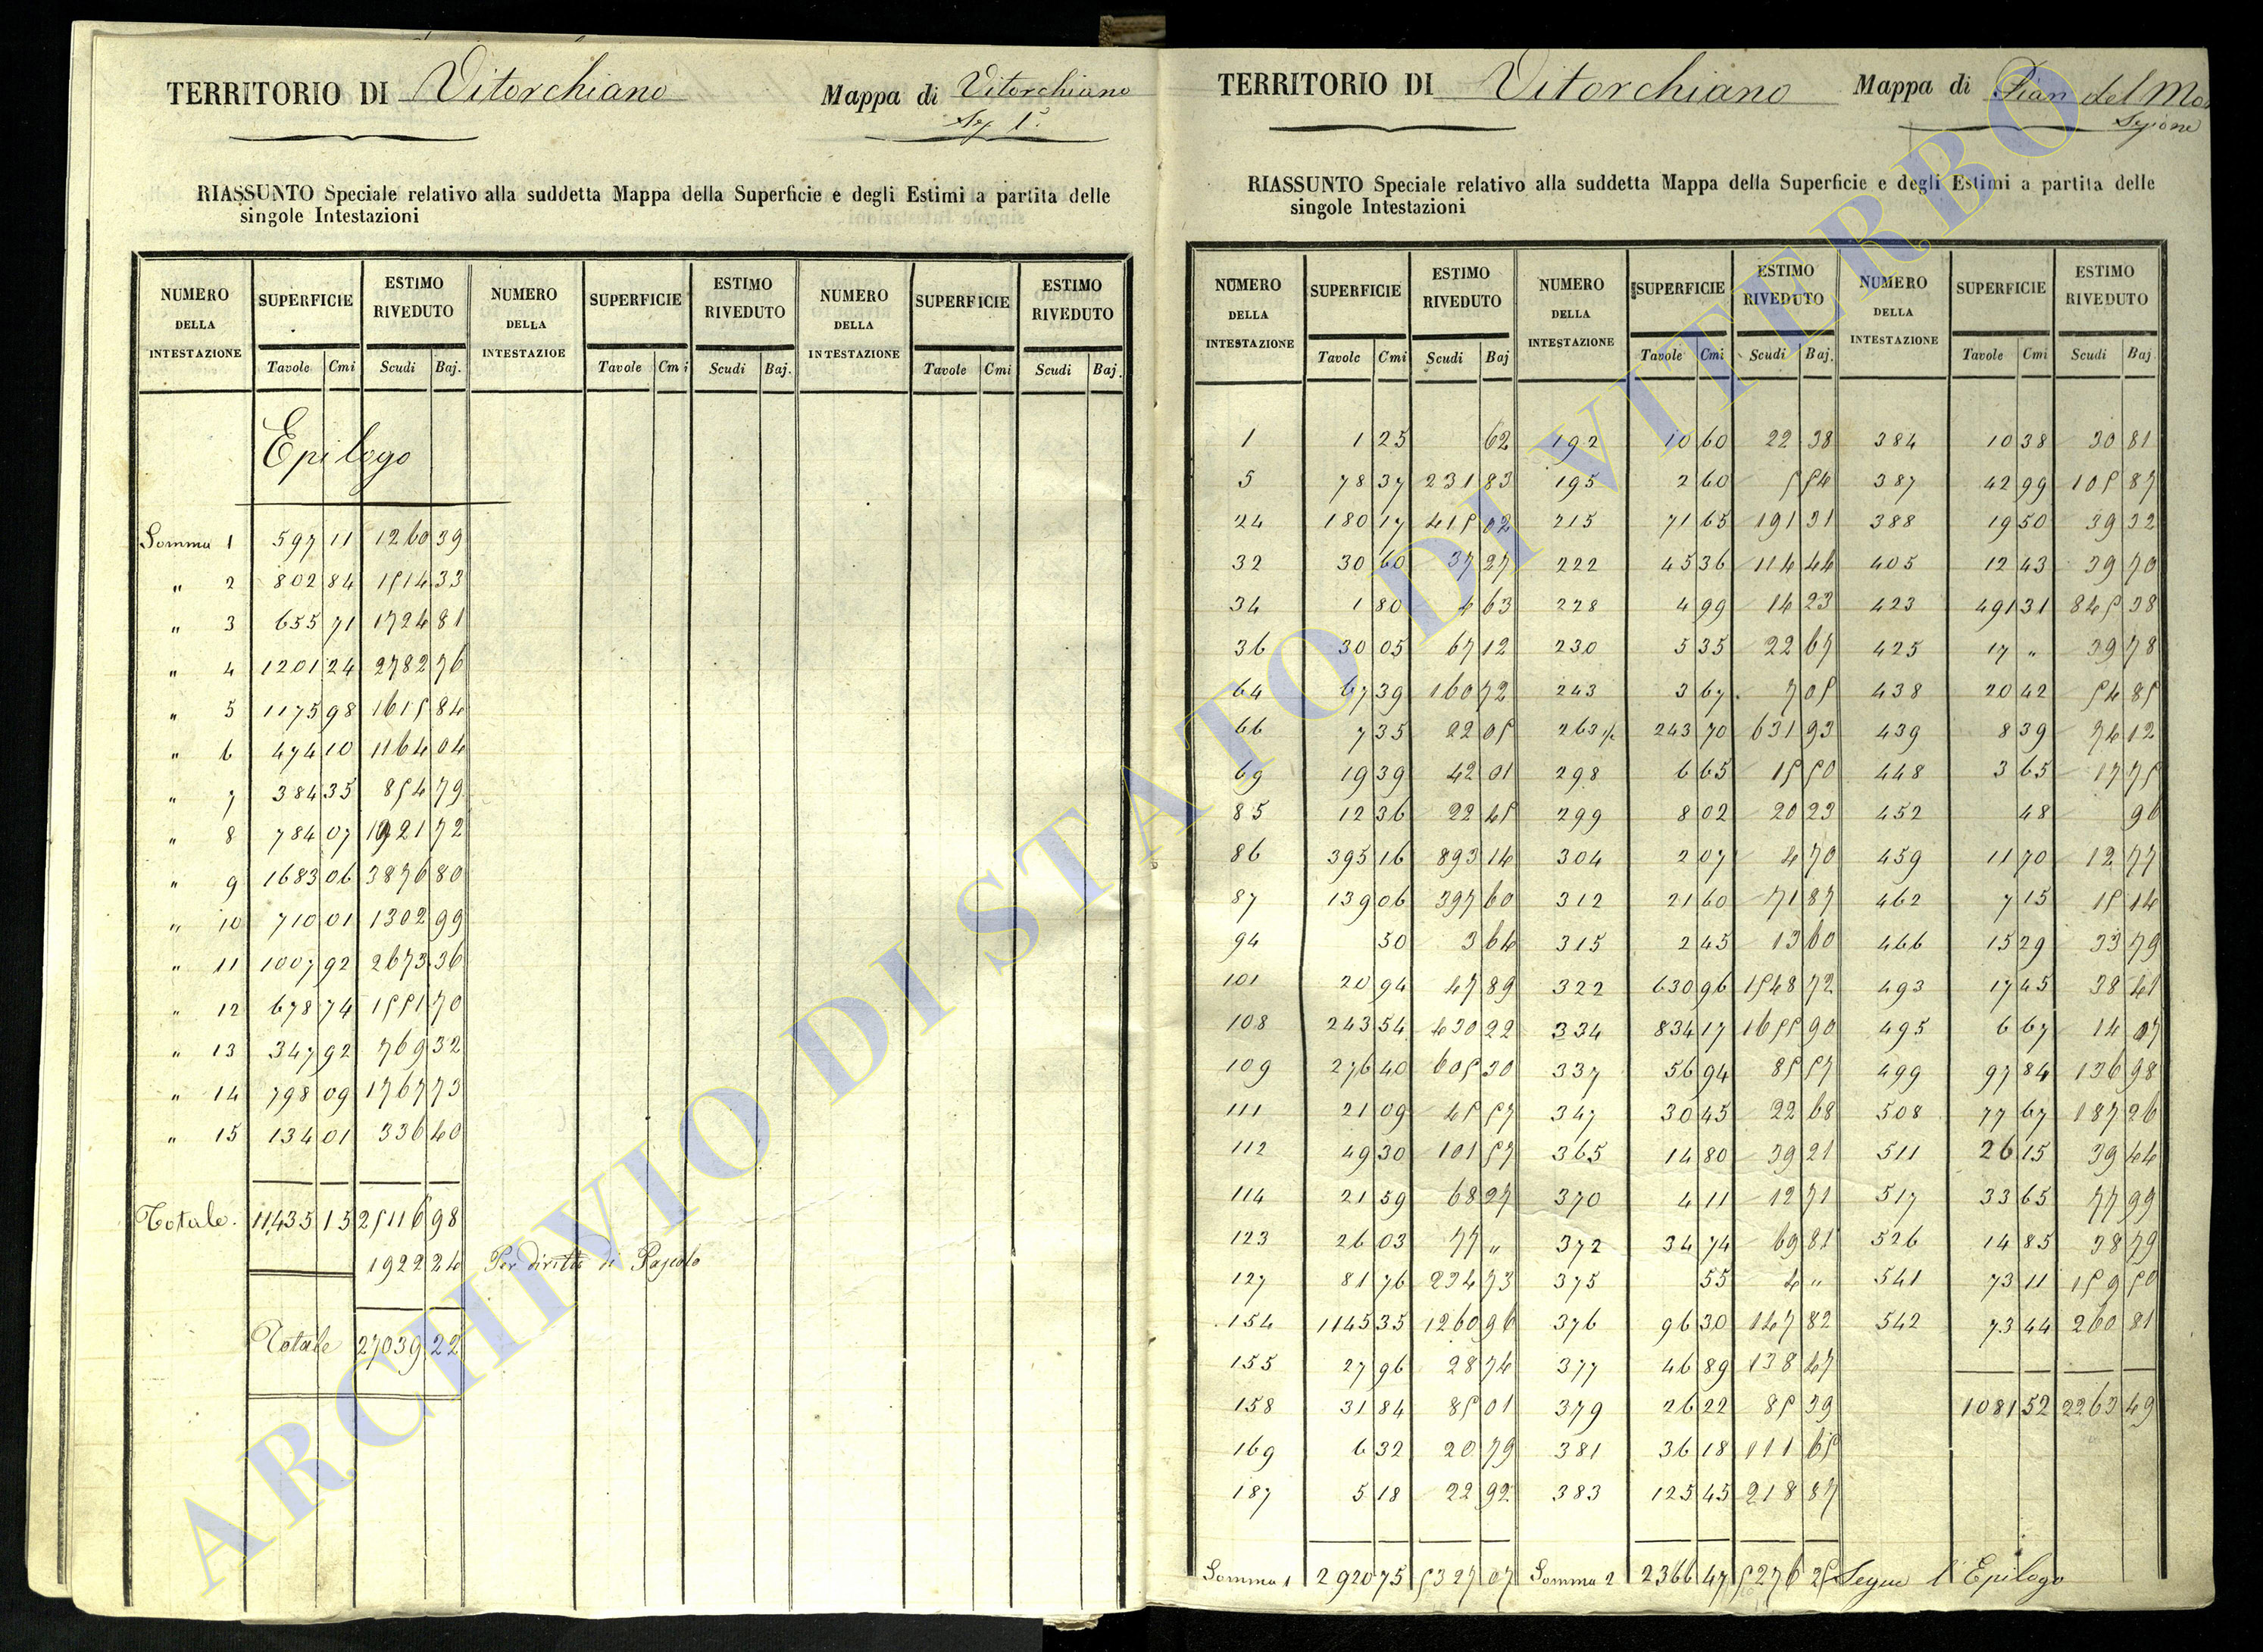 TERRITORIO DI Vitorchiano Mappa di Vitorchiano
Sez. 1ª
RIASSUNTO Speciale relativo alla suddetta Mappa della Superficie e degli Estimi a partita delle
singole Intestazioni
NUMERO DELLA INTESTAZIONE SUPERFICIE ESTIMO RIVEDUTO NUMERO DELLA INTESTAZIOE SUPERFICIE ESTIMO RIVEDUTO NUMERO DELLA INTESTAZIONE SUPERFICIE ESTIMO RIVEDUTO
Tavole Cmi Scudi Baj. Tavole Cmi Scudi Baj. Tavole Cmi Scudi Baj.
Epilogo
Somma 1 597 11 1260 39
" 2 802 84 1514 33
" 3 655 71 1724 81
" 4 1201 24 2782 76
" 5 1175 98 1615 84
" 6 474 10 1164 04
" 7 384 35 854 79
" 8 784 07 1921 72
" 9 1683 06 3876 80
" 10 710 01 1302 99
" 11 1007 92 2673 36
" 12 678 74 1551 70
" 13 347 92 769 32
" 14 798 09 1767 73
" 15 134 01 336 40
Totale 11435 15 25116 98
1922 24 Per diritto di Pascolo
Totale 27039 22
TERRITORIO DI Vitorchiano Mappa di Pian del Mo
Sezione
RIASSUNTO Speciale relativo alla suddetta Mappa della Superficie e degli Estimi a partita delle
singole Intestazioni
NUMERO DELLA INTESTAZIONE SUPERFICIE ESTIMO RIVEDUTO NUMERO DELLA INTESTAZIONE SUPERFICIE ESTIMO RIVEDUTO NUMERO DELLA INTESTAZIONE SUPERFICIE ESTIMO RIVEDUTO
Tavole Cmi Scudi Baj Tavole Cmi Scudi Baj. Tavole Cmi Scudi Baj.
1 1 25 62 192 10 60 22 38 384 10 38 30 81
5 78 37 231 83 195 2 60 5 54 387 42 99 105 87
24 180 17 415 02 215 71 65 191 31 388 19 50 39 32
32 30 60 37 27 222 45 36 114 44 405 12 43 39 70
34 1 80 4 63 228 4 99 14 23 423 491 31 845 38
36 30 05 67 12 230 5 35 22 67 425 17 " 39 78
64 67 39 160 72 243 3 67 7 05 438 20 42 54 85
66 7 35 22 05 263 1/2 243 70 631 93 439 8 39 24 12
69 19 39 42 01 298 6 65 15 50 448 3 65 17 75
85 12 36 22 45 299 8 02 20 23 452 48 96
86 395 16 893 14 304 2 07 4 70 459 11 70 12 77
87 139 06 397 60 312 21 60 71 87 462 7 15 15 14
94 50 3 64 315 2 45 13 60 466 15 29 33 79
101 20 94 47 89 322 630 96 1548 72 493 17 45 38 41
108 243 54 430 22 334 834 17 1655 90 495 6 67 14 07
109 276 40 605 30 337 56 94 85 57 499 97 84 136 98
111 21 09 45 57 347 30 45 22 68 508 77 67 187 26
112 49 30 101 57 365 14 80 39 21 511 26 15 39 44
114 21 59 68 27 370 4 11 12 71 517 33 65 77 99
123 26 03 77 " 372 34 74 69 81 526 14 85 38 79
127 81 76 234 73 375 55 4 " 541 73 11 159 50
154 1145 35 1260 96 376 96 30 147 82 542 73 44 260 81
155 27 96 28 74 377 46 89 138 47
158 31 84 85 01 379 26 22 85 39 1081 52 2263 49
169 6 32 20 79 381 36 18 111 65
187 5 18 22 92 383 125 45 218 87
Somma 1 2920 75 5327 07 Somma 2 2366 47 5276 25 Segue l'Epilogo
ARCHIVIO DI STATO DI VITERBO